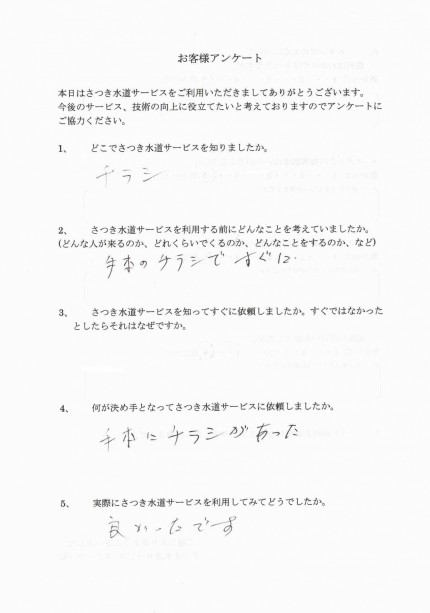 お客様アンケート
本日はさつき水道サービスをご利用いただきましてありがとうございます。
今後のサービス、技術の向上に役立てたいと考えておりますのでアンケートに
ご協力ください。
1、 どこでさつき水道サービスを知りましたか。
チラシ
2、 さつき水道サービスを利用する前にどんなことを考えていましたか。
(どんな人が来るのか、どれくらいでくるのか、どんなことをするのか、など)
手本のチラシですぐに.
3、 さつき水道サービスを知ってすぐに依頼しましたか。すぐではなかった
としたらそれはなぜですか。
4、 何が決め手となってさつき水道サービスに依頼しましたか。
手本にチラシがあった
5、 実際にさつき水道サービスを利用してみてどうでしたか。
良かったです